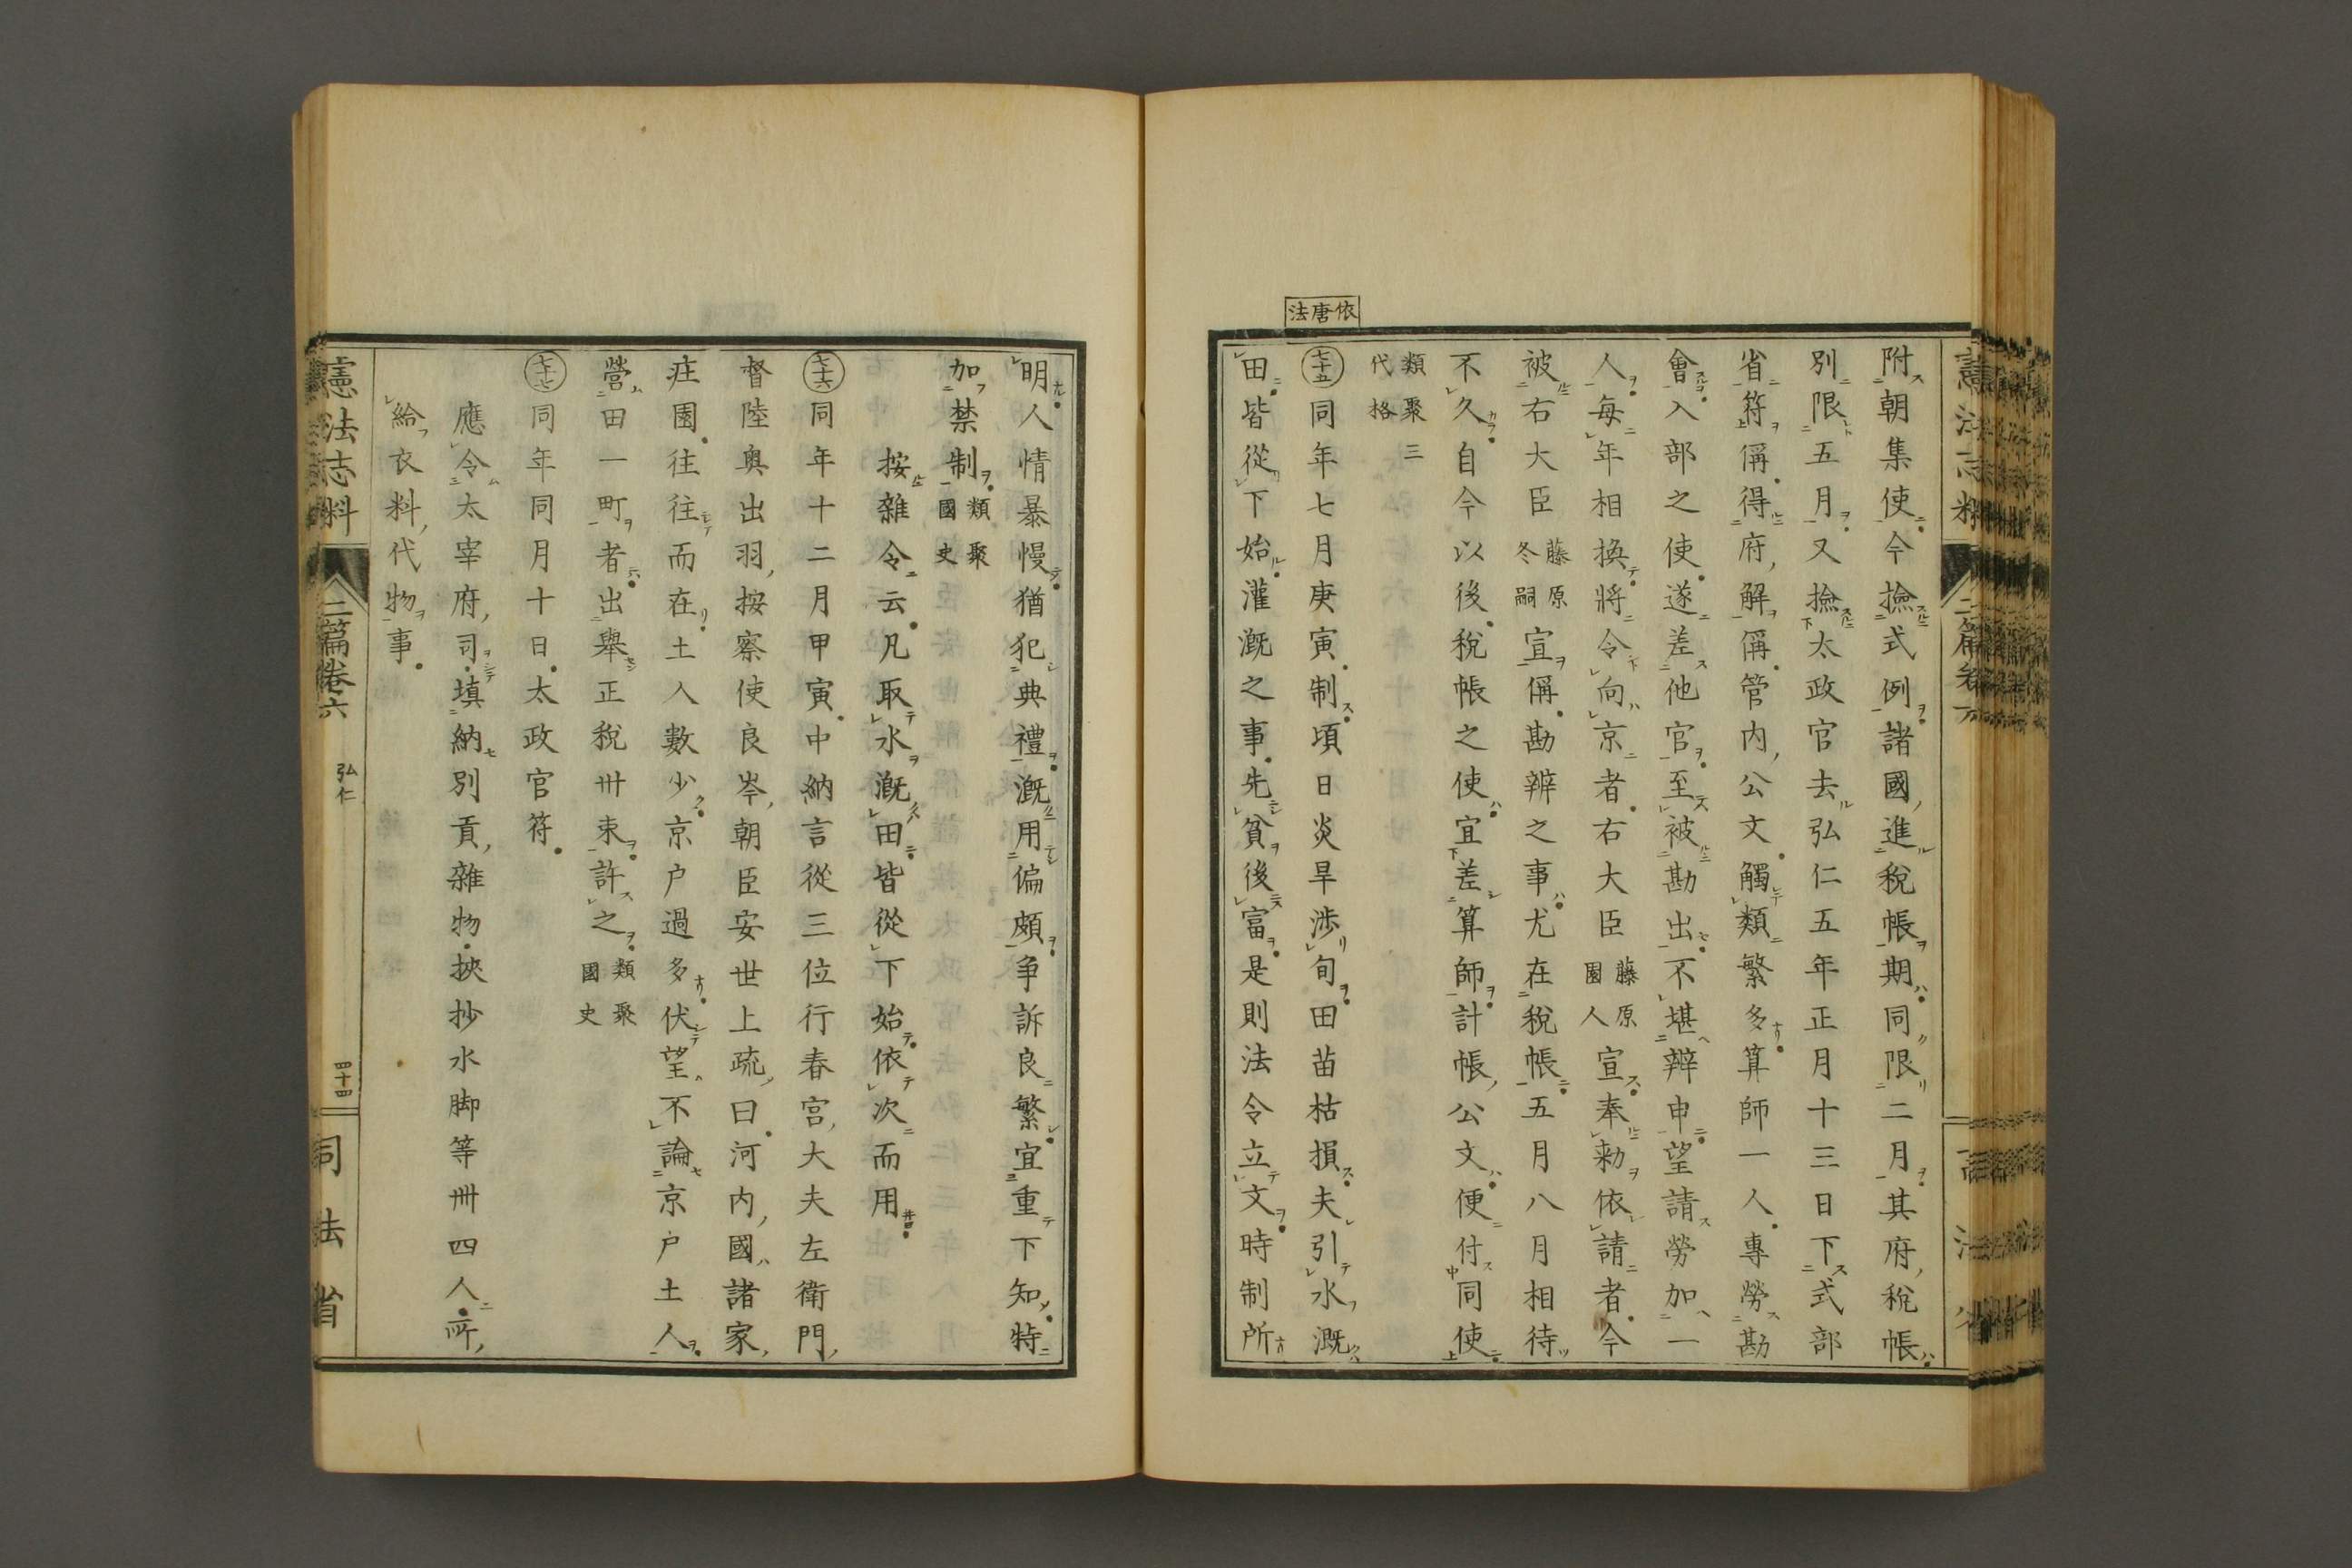 依唐法
附朝集使今撿式例諸國進税帳期同限二月其府税帳
別限五月又撿太政官去弘仁五年正月十三日下式部
省符偁得府解偁管内公文觸類繁多算師一人專勞勘
會入部之使遂差他官至被勘出不堪辨申望請勞加一
人毎年相換將令向京者右大臣藤原園人宣奉勅依請者今
被右大臣藤原冬嗣宣偁勘辨之事尤在税帳五月八月相待
不久自今以後税帳之使宜差算師計帳公文便付同使
類聚三代格
七十五同年七月庚寅制頃日炎旱渉旬田苗枯損夫引水漑
田皆從下始灌漑之事先貧後富是則法令立文時制所
明人情暴慢猶犯典禮漑用偏頗争訴良繁宜重下知特
加禁制類聚國史
按雜令云凡取水漑田皆從下始依次而用
七十六同年十二月甲寅中納言從三位行春宮大夫左衛門
督陸奥出羽按察使良岑朝臣安世上疏曰河内國諸家
庄園往往而在土人數少京戸過多伏望不論京戸土人
營田一町者出擧正税卅束許之類聚國史
七十七同年同月十日太政官符
應令太宰府司填納別貢雜物挾抄水脚等卌四人所
給衣料代物事
憲法志料
二篇卷六
弘仁
四十四
司法省